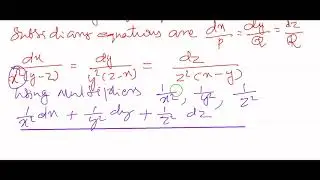 Subsidiary equations are dx/P = dy/Q = dz/Q
dx/x²(y-z) = dy/y²(z-x) = dz/z²(x-y)
Using multipliers 1/x², 1/y², 1/z²
1/x² dx + 1/y² dy + 1/z² dz